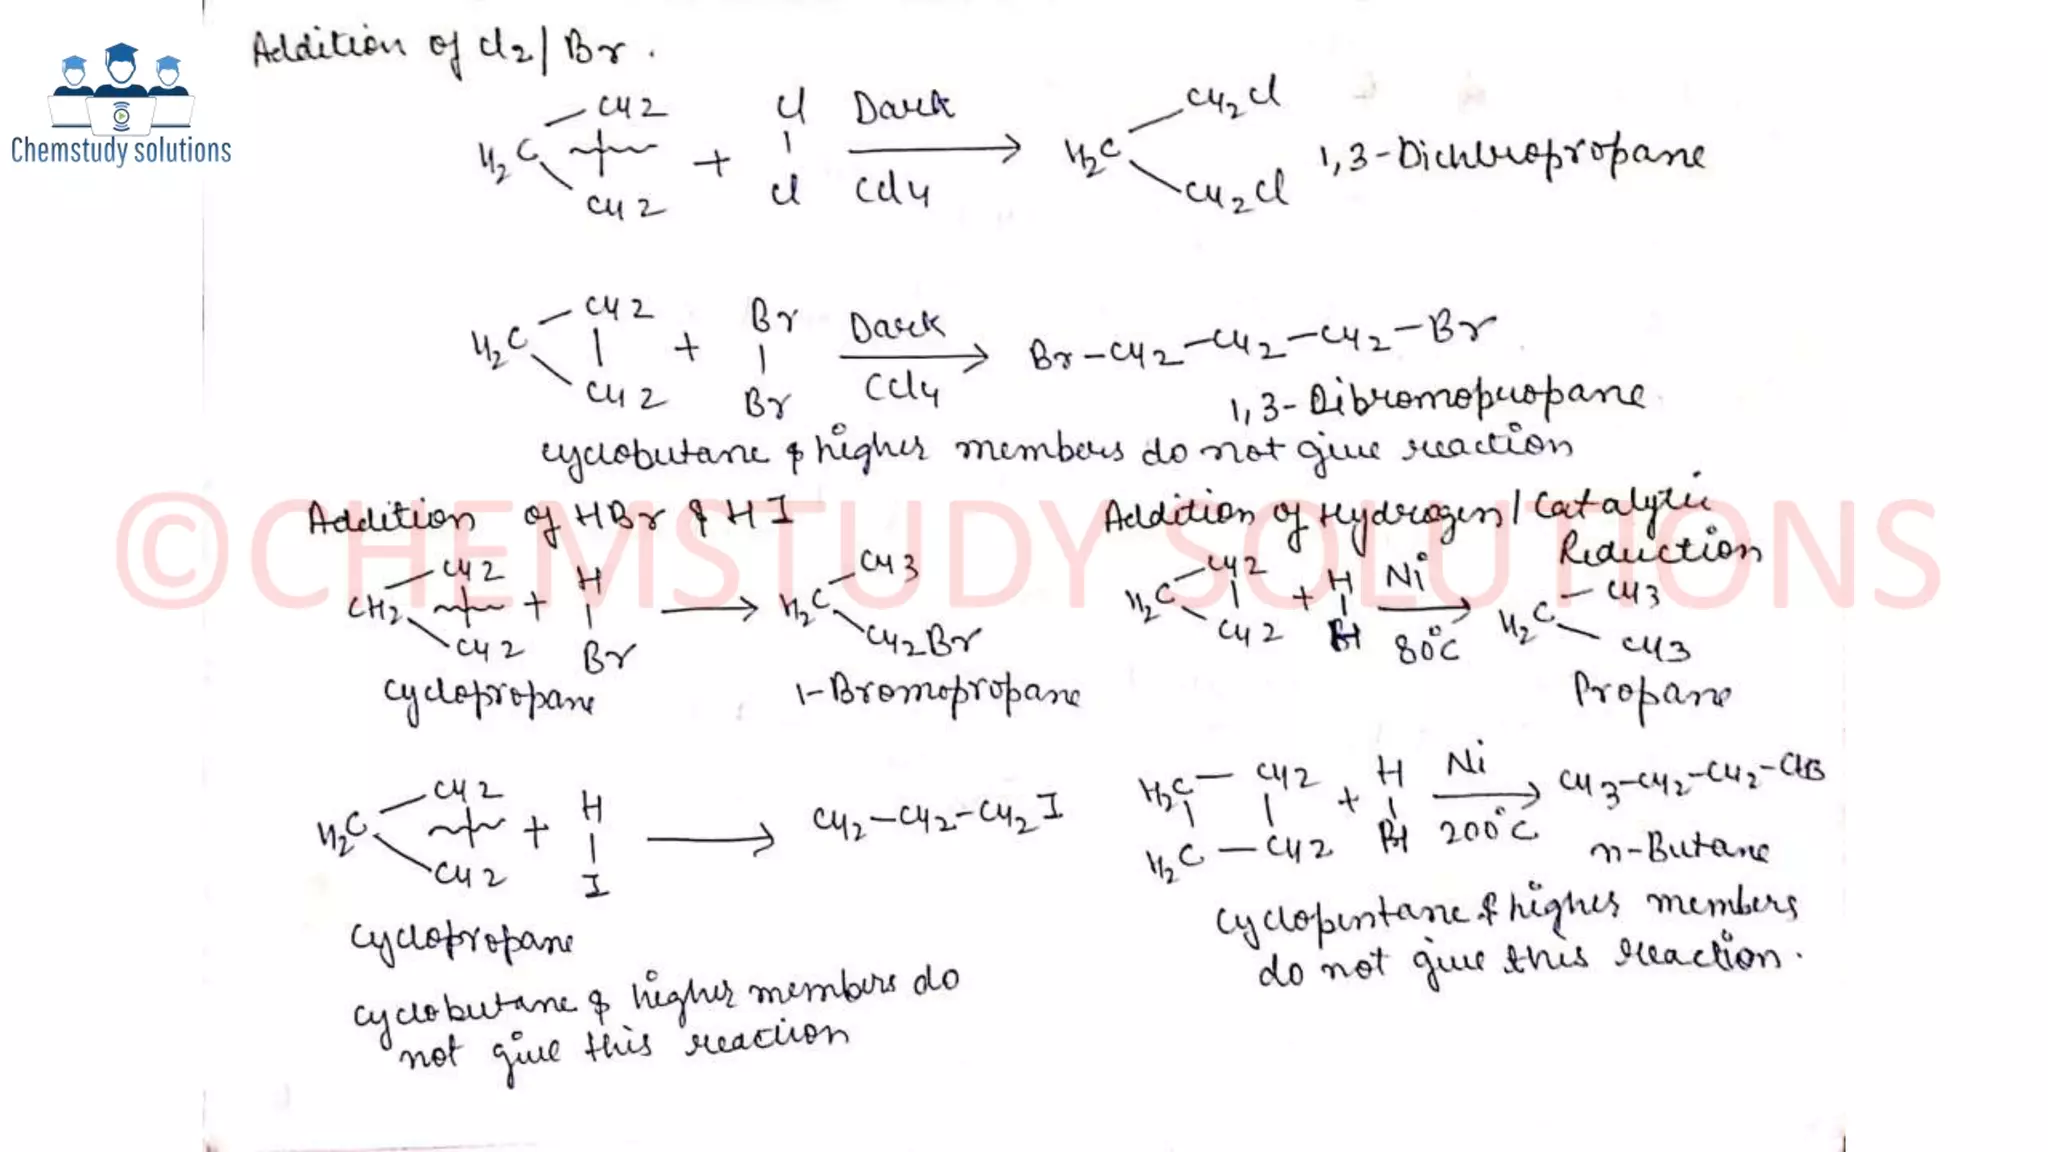 Chemstudy solutions
Addition of Cl2/Br.
H2C CH2 CH2 + Cl Cl Dark CCl4 → H2C CH2Cl CH2Cl 1,3-Dichloropropane
H2C CH2 CH2 + Br Br Dark CCl4 → Br-CH2-CH2-CH2-Br
1,3-Dibromopropane
cyclobutane & higher members do not give reaction
©CHEMSTUDY SOLUTIONS
Addition of HBr & HI
CH2 CH2 CH2 + H Br → H2C CH3 CH2Br
cyclopropane 1-Bromopropane
H2C CH2 CH2 + H I → CH2-CH2-CH2I
cyclopropane
cyclobutane & higher members do
not give this reaction
Addition of Hydrogen/Catalytic
Reduction
H2C CH2 CH2 + H H Ni 80°C → H2C CH3 CH3
Propane
H2C-CH2 H2C-CH2 + H H Ni 200°C → CH3-CH2-CH2-CH3
n-Butane
cyclopentane & higher members
do not give this reaction.